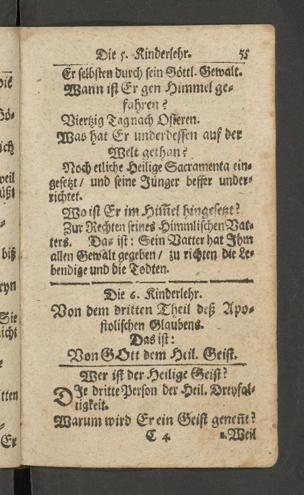 Die 5. Kinderlehr. 55
Er selbsten durch sein Göttl. Gewalt.
Wann ist Er gen Himmel ge-
fahren?
Viertzig Tag nach Osteren.
Was hat Er underdessen auf der
Welt gethan?
Noch etliche Heilige Sacramenta ein-
gesetzt / und seine Jünger besser under-
richtet.
Wo ist Er im Him̃el hingesetzt?
Zur Rechten seines Himmlischen Vat-
ters. Das ist: Sein Vatter hat Ihm
allen Gewalt gegeben / zu richten die Le-
bendige und die Todten.
Die 6. Kinderlehr.
Von dem dritten Theil deß Apo-
stolischen Glaubens.
Das ist:
Von GOtt dem Heil. Geist.
Wer ist der Heilige Geist?
DIe dritte Person der Heil. Dreyfal-
tigkeit.
Warum wird Er ein Geist geneñt?
C 4 1. Weil